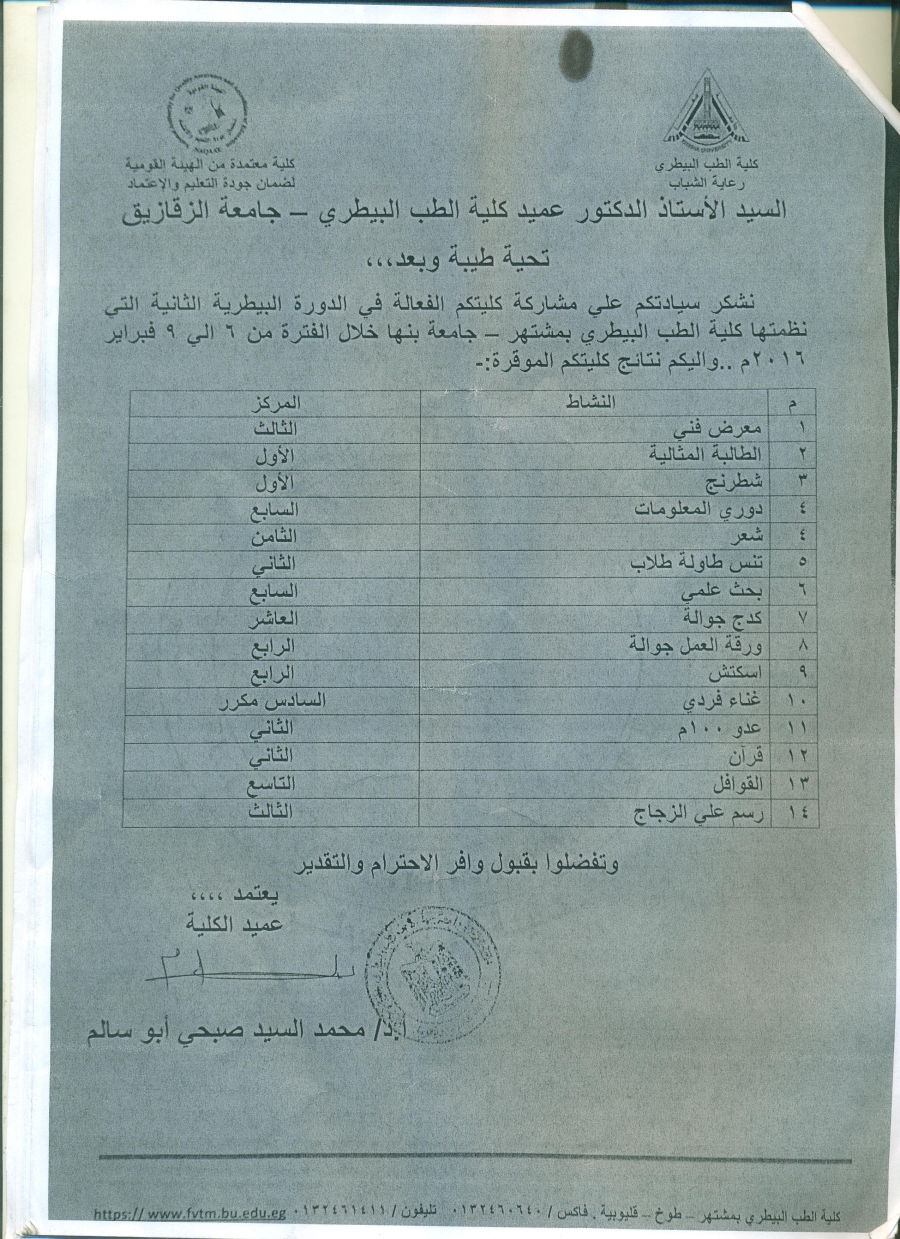 كلية الطب البيطري
رعاية الشباب
كلية معتمدة من الهيئة القومية
لضمان جودة التعليم والإعتماد
السيد الأستاذ الدكتور عميد كلية الطب البيطري – جامعة الزقازيق
تحية طيبة وبعد،،،
نشكر سيادتكم علي مشاركة كليتكم الفعالة في الدورة البيطرية الثانية التي
نظمتها كلية الطب البيطري بمشتهر – جامعة بنها خلال الفترة من ٦ الي ٩ فبراير
٢٠١٦م ..واليكم نتائج كليتكم الموقرة:-
م النشاط المركز
١ معرض فني الثالث
٢ الطالبة المثالية الأول
٣ شطرنج الأول
٤ دوري المعلومات السابع
٤ شعر الثامن
٥ تنس طاولة طلاب الثاني
٦ بحث علمي السابع
٧ كدج جوالة العاشر
٨ ورقة العمل جوالة الرابع
٩ اسكتش الرابع
١٠ غناء فردي السادس مكرر
١١ عدو ١٠٠م الثاني
١٢ قرآن الثاني
١٣ القوافل التاسع
١٤ رسم علي الزجاج الثالث
وتفضلوا بقبول وافر الاحترام والتقدير
يعتمد ،،،،
عميد الكلية
أ.د/ محمد السيد صبحي أبو سالم
كلية الطب البيطري بمشتهر – طوخ – قليوبية . فاكس / ٠١٣٢٤٦٠٦٤٠ تليفون / ٠١٣٢٤٦١٤١١ https:// www.fvtm.bu.edu.eg